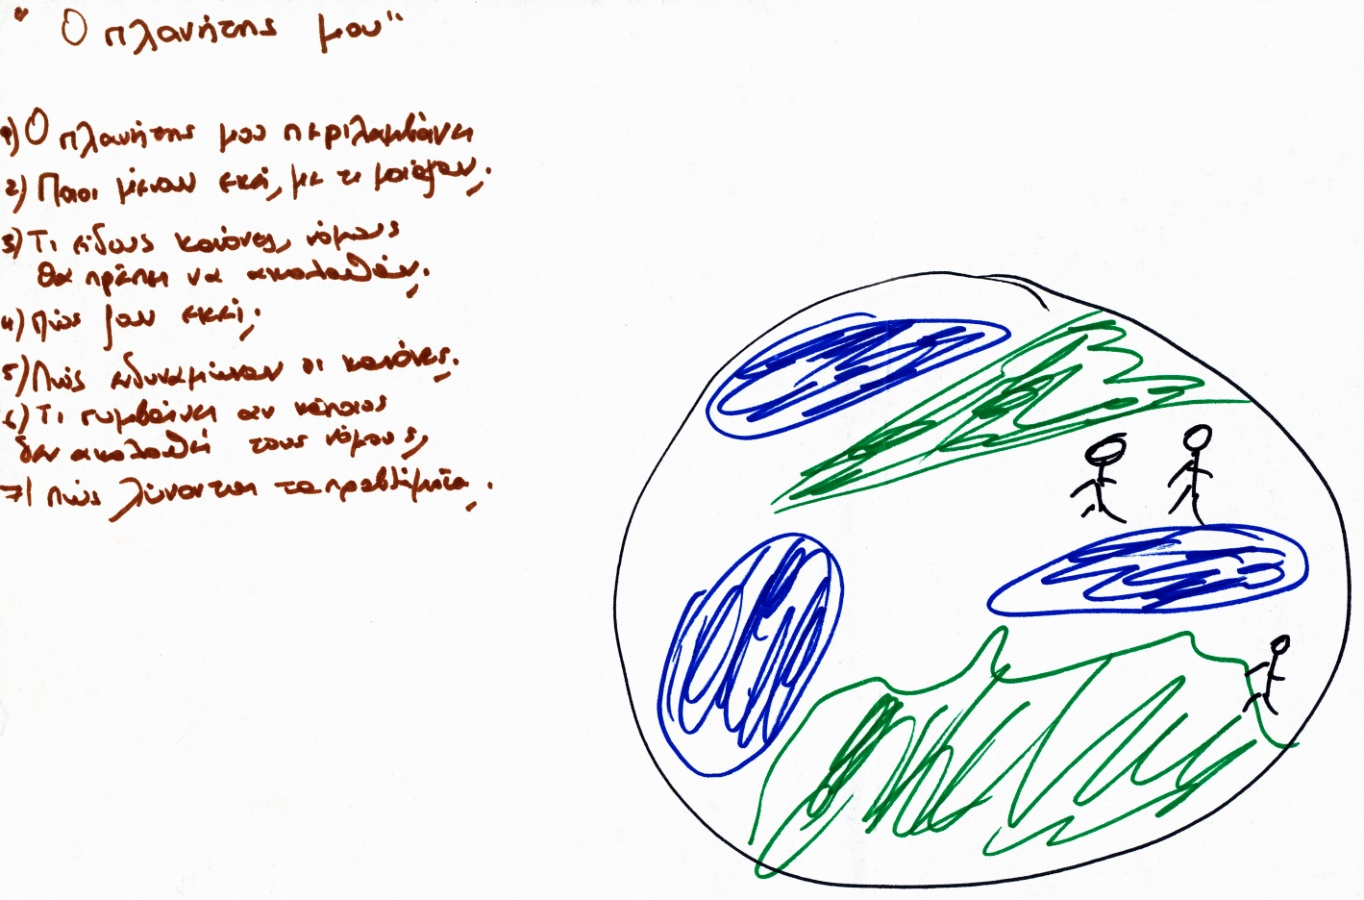 " Ο πλανήτης μου"
1) Ο πλανήτης μου περιλαμβάνει
2) Ποιοι μένουν εκεί, με τι μοιάζουν;
3) Τι είδους κανόνες, νόμους
θα πρέπει να ακολουθούν;
4) Πώς ζουν εκεί;
5) Πώς ενδυναμώνουν οι κανόνες;
6) Τι συμβαίνει αν κάποιος
δεν ακολουθεί τους νόμους;
7) Πώς λύνονται τα προβλήματα;